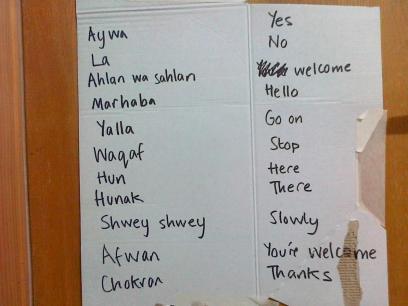 Aywa Yes
La No
Ahlan wa sahlan welcome
Marhaba Hello
Yalla Go on
Waqaf Stop
Hun Here
Hunak There
Shwey shwey Slowly
Afwan You're welcome
Chokron Thanks